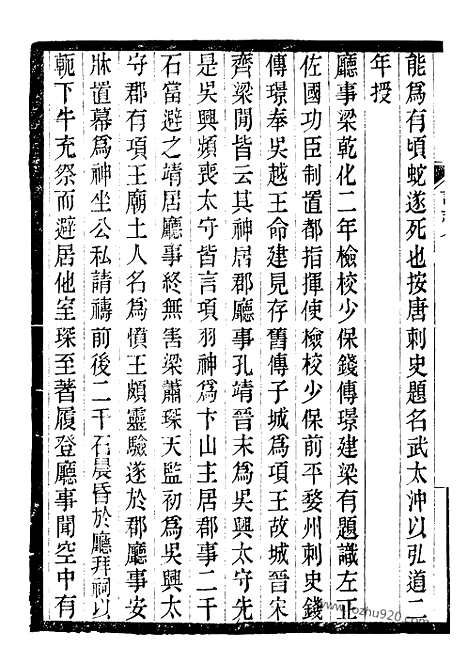 能爲有頃蛇遂死也按唐刺史題名武太沖以弘道二
年授
廳事梁乾化二年檢校少保錢傳璟建梁有題識左正
佐國功臣制置都指揮使檢校少保前平婺州刺史錢
傳璟奉吳越王命建見存舊傳子城爲項王故城晉宋
齊梁間皆云其神居郡廳事孔靖晉末爲吳興太守先
是吳興頻喪太守皆言項羽神爲卞山主居郡事二千
石當避之靖居廳事終無害梁蕭琛天監初爲吳興太
守郡有項王廟土人名爲憤王頗靈驗遂於郡廳事安
牀置幕爲神坐公私請禱前後二千石晨昏於廳拜祠以
軛下牛充祭而避居他室琛至著履登廳事聞空中有
www.fozhu920.com